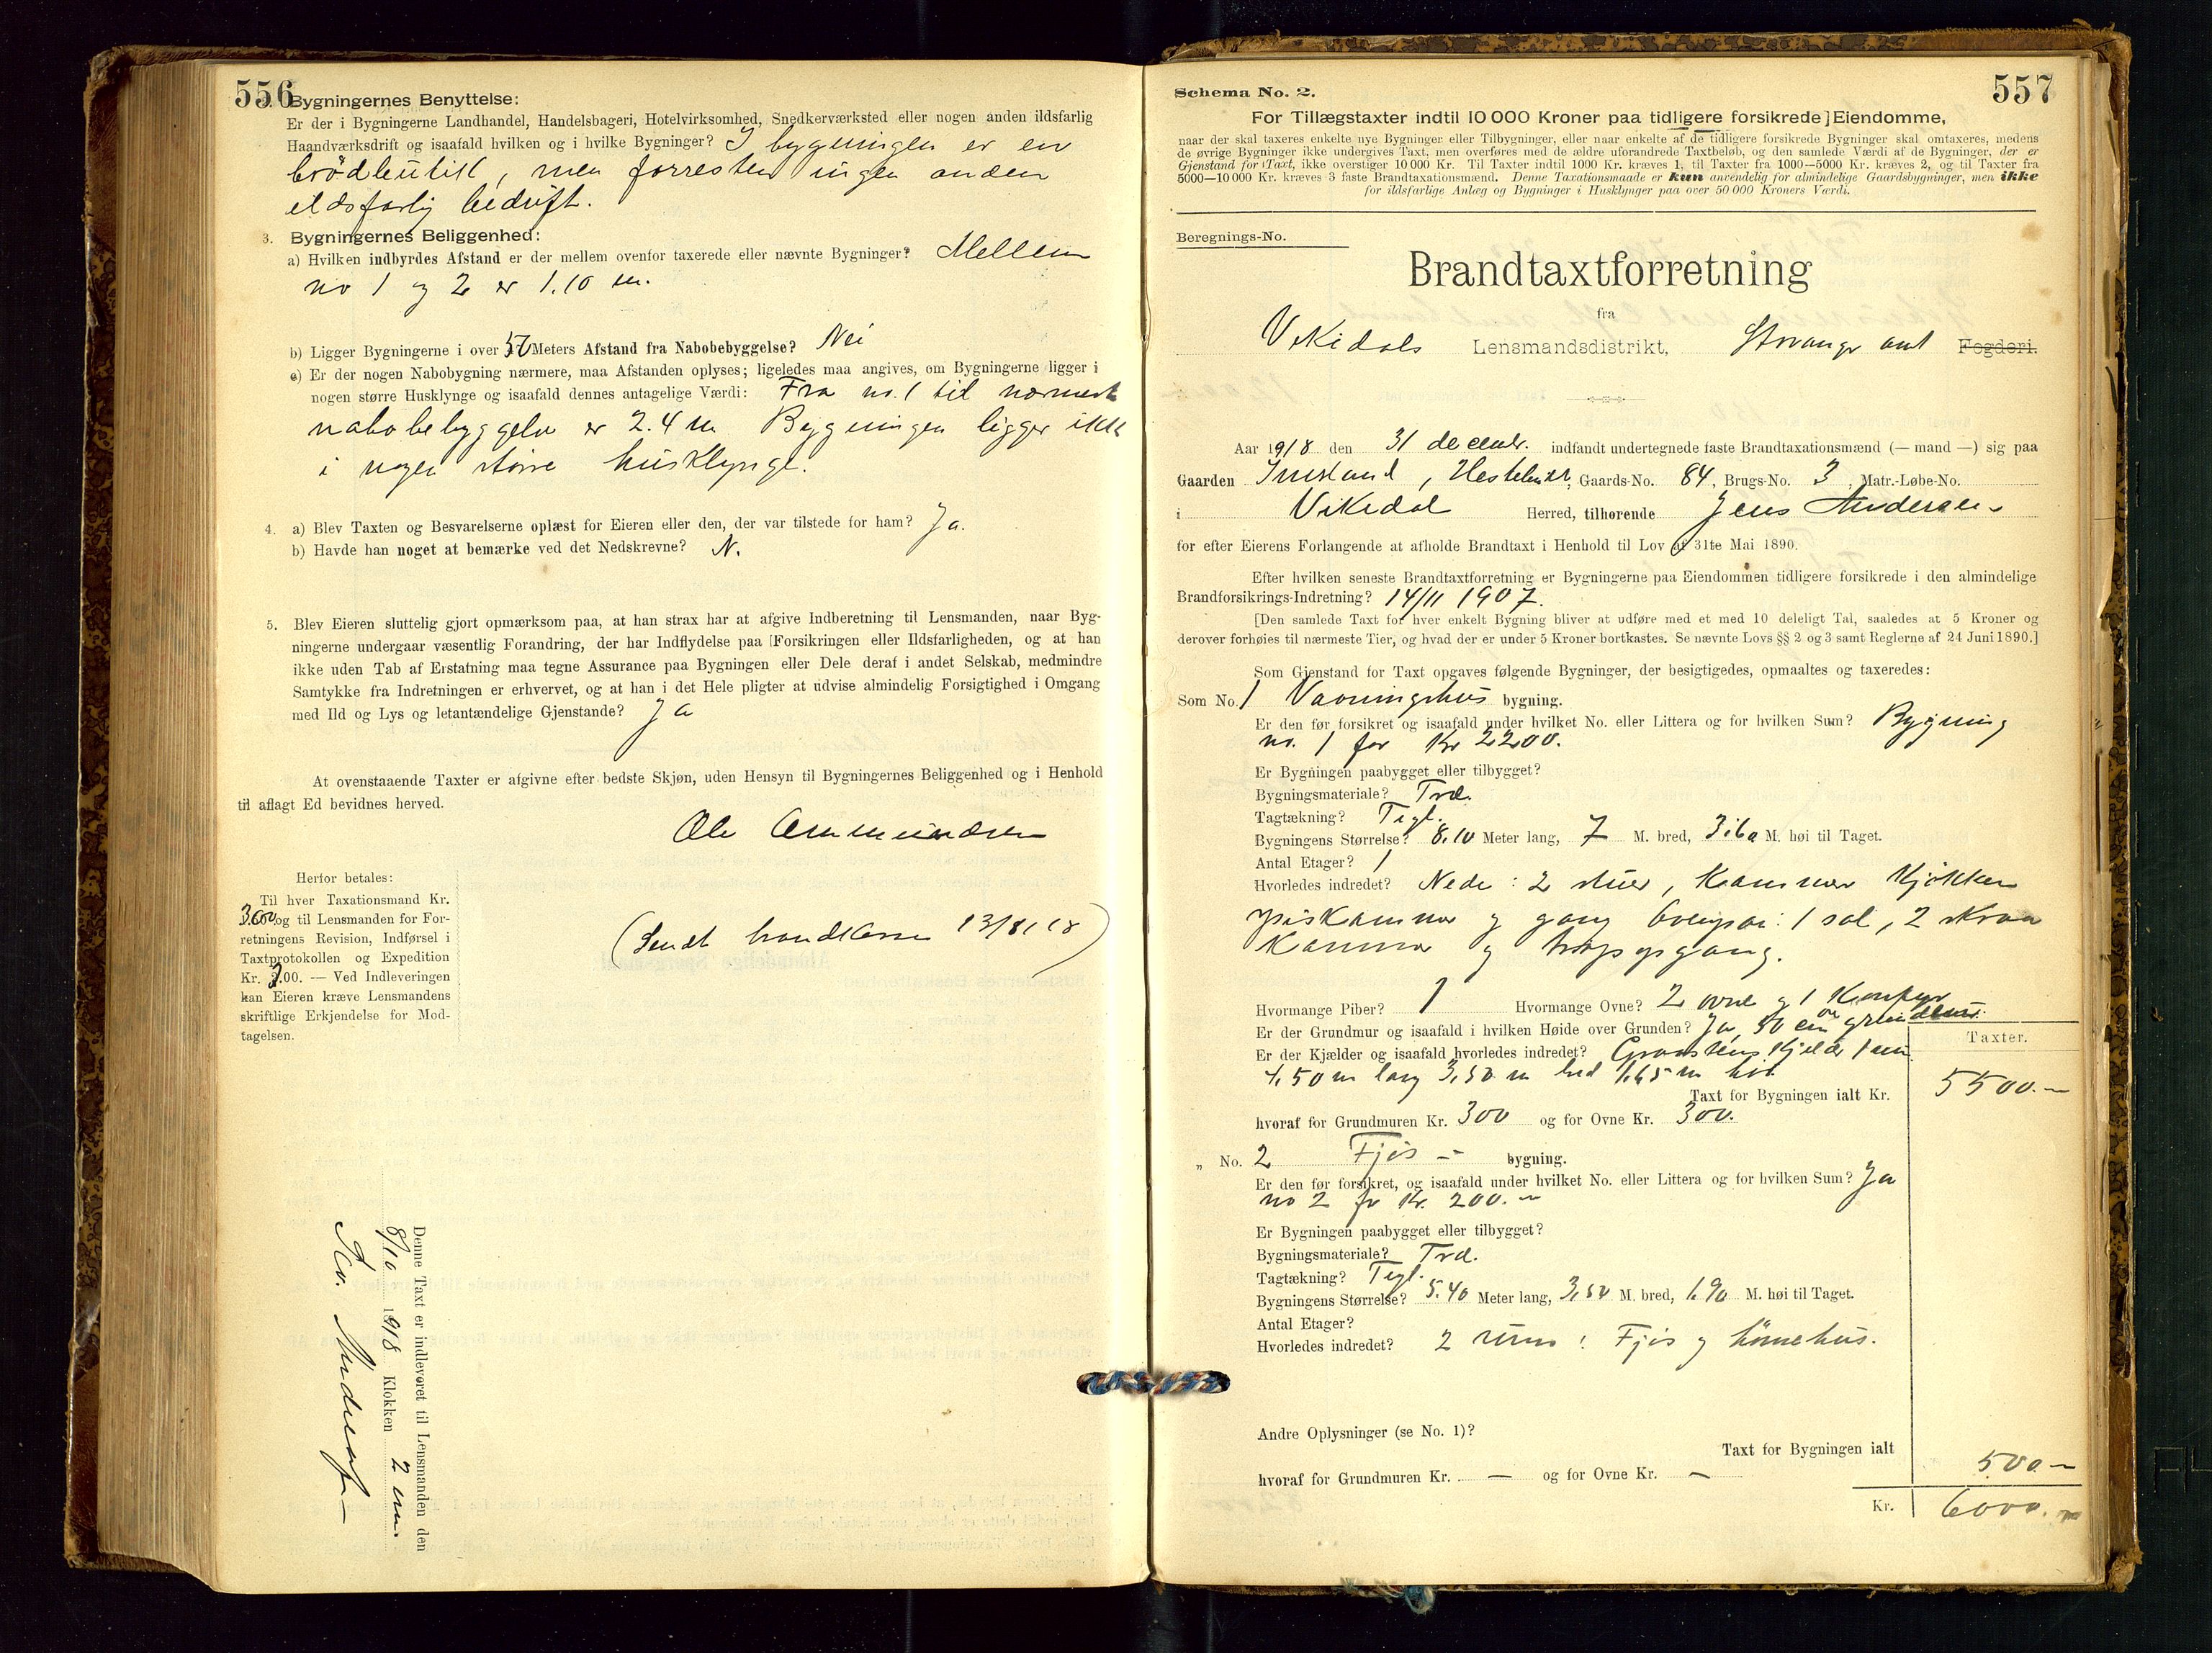 556
Bygningernes Benyttelse:
Er der i Bygningerne Landhandel, Handelsbageri, Hotelvirksomhed, Snedkerværksted eller nogen anden ildsfarlig
Haandværksdrift og isaafald hvilken og i hvilke Bygninger? I bygningen er en
brödbutikk, men forresten ingen anden
eldsfarlig bedrift.
3. Bygningernes Beliggenhed:
a) Hvilken indbyrdes Afstand er der mellem ovenfor taxerede eller nævnte Bygninger? Mellem
no 1 og 2 er 1.10 m.
b) Ligger Bygningerne i over Meters Afstand fra Nabobebyggelse? Nei
c) Er der nogen Nabobygning nærmere, maa Afstanden oplyses; ligeledes maa angives, om Bygningerne ligger i
nogen større Husklynge og isaafald dennes antagelige Værdi: Fra no. 1 til nærmeste
nabobebyggelse er 2.4 m Bygningen ligger ikke
i nogen större husklynge.
4. a) Blev Taxten og Besvarelserne oplæst for Eieren eller den, der var tilstede for ham? Ja.
b) Havde han noget at bemærke ved det Nedskrevne? N.
5. Blev Eieren sluttelig gjort opmærksom paa, at han strax har at afgive Indberetning til Lensmanden, naar Byg-
ningerne undergaar væsentlig Forandring, der har Indflydelse paa Forsikringen eller Ildsfarligheden, og at han
ikke uden Tab af Erstatning maa tegne Assurance paa Bygningen eller Dele deraf i andet Selskab, medmindre
Samtykke fra Indretningen er erhvervet, og at han i det Hele pligter at udvise almindelig Forsigtighed i Omgang
med Ild og Lys og letantændelige Gjenstande? Ja
At ovenstaaende Taxter er afgivne efter bedste Skjøn, uden Hensyn til Bygningernes Beliggenhed og i Henhold
til aflagt Ed bevidnes herved.
Ole Ommundsen
Herfor betales:
Til hver Taxationsmand Kr.
3.00 og til Lensmanden for For-
retningens Revision, Indførsel i
Taxtprotokollen og Expedition
Kr. 3.00. — Ved Indleveringen
kan Eieren kræve Lensmandens
skriftlige Erkjendelse for Mod-
tagelsen.
(Sendt brandkassen 13/8/18)
Denne Taxt er indleveret til Lensmanden den
8/10 1918 Klokken 2 em.
557
Schema No. 2.
For Tillægstaxter indtil 10 000 Kroner paa tidligere forsikrede] Eiendomme,
naar der skal taxeres enkelte nye Bygninger eller Tilbygninger, eller naar enkelte af de tidligere forsikrede Bygninger skal omtaxeres, medens
de øvrige Bygninger ikke undergives Taxt, men overføres med de ældre uforandrede Taxtbeløb, og den samlede Værdi af de Bygninger, der er
Gjenstand for Taxt, ikke overstiger 10 000 Kr. Til Taxter indtil 1000 Kr. kræves 1, til Taxter fra 1000—5000 Kr. kræves 2, og til Taxter fra
5000—10 000 Kr. kræves 3 faste Brandtaxationsmænd. Denne Taxationsmaade er kun anvendelig for almindelige Gaardsbygninger, men ikke
for ildsfarlige Anlæg og Bygninger i Husklynger paa over 50 000 Kroners Værdi.
Beregnings-No.
Brandtaxtforretning
fra
Vikedals Lensmandsdistrikt, Stavanger amt Fogderi.
Aar 1918 den 31 decembr. indfandt undertegnede faste Brandtaxationsmænd (— mand —) sig paa
Gaarden , Gaards-No. 84, Brugs-No. 3, Matr.-Løbe-No.
i Vikedal Herred, tilhørende Jens Andersen
for efter Eierens Forlangende at afholde Brandtaxt i Henhold til Lov af 31te Mai 1890.
Efter hvilken seneste Brandtaxtforretning er Bygningerne paa Eiendommen tidligere forsikrede i den almindelige
Brandforsikrings-Indretning? 14/11 1907.
[Den samlede Taxt for hver enkelt Bygning bliver at udføre med et med 10 deleligt Tal, saaledes at 5 Kroner og
derover forhøies til nærmeste Tier, og hvad der er under 5 Kroner bortkastes. Se nævnte Lovs §§ 2 og 3 samt Reglerne af 24 Juni 1890.]
Som Gjenstand for Taxt opgaves følgende Bygninger, der besigtigedes, opmaaltes og taxeredes:
Som No. 1 Vaaningshus bygning.
Er den før forsikret og isaafald under hvilket No. eller Littera og for hvilken Sum? Bygning
no. 1 for Kr 2200.
Er Bygningen paabygget eller tilbygget?
Bygningsmateriale? Træ.
Tagtækning? Tegl.
Bygningens Størrelse? 8.10 Meter lang, 7 M. bred, 3.60 M. høi til Taget.
Antal Etager? 1
Hvorledes indredet? Nede: 2 stuer, kammer kjøkken
spiskammer og gang Ovenpaa: 1 sal, 2 skraa
kammer og trapegang.
Hvormange Piber? 1 Hvormange Ovne? 2 ovne og 1 komfyr
Er der Grundmur og isaafald i hvilken Høide over Grunden? Ja, 50 cm over grunden.
Taxter.
Er der Kjælder og isaafald hvorledes indredet? Graastens kjelder 1 rum
4,50 m lang 3,50 m bred 1.65 m høi
Taxt for Bygningen ialt Kr. 5500.—
hvoraf for Grundmuren Kr. 300 og for Ovne Kr. 300.
„ No. 2 Fjøs — bygning.
Er den før forsikret, og isaafald under hvilket No. eller Littera og for hvilken Sum? Ja
no 2 for Kr. 200.—
Er Bygningen paabygget eller tilbygget?
Bygningsmateriale? Træ.
Tagtækning? Tegl.
Bygningens Størrelse? 5.40 Meter lang, 3,50 M. bred, 1.90 M. høi til Taget.
Antal Etager?
Hvorledes indredet? 2 rum: Fjøs og hönsehus.
Andre Oplysninger (se No. 1)?
Taxt for Bygningen ialt 500.—
hvoraf for Grundmuren Kr. — og for Ovne Kr. —
Kr. 6000.—